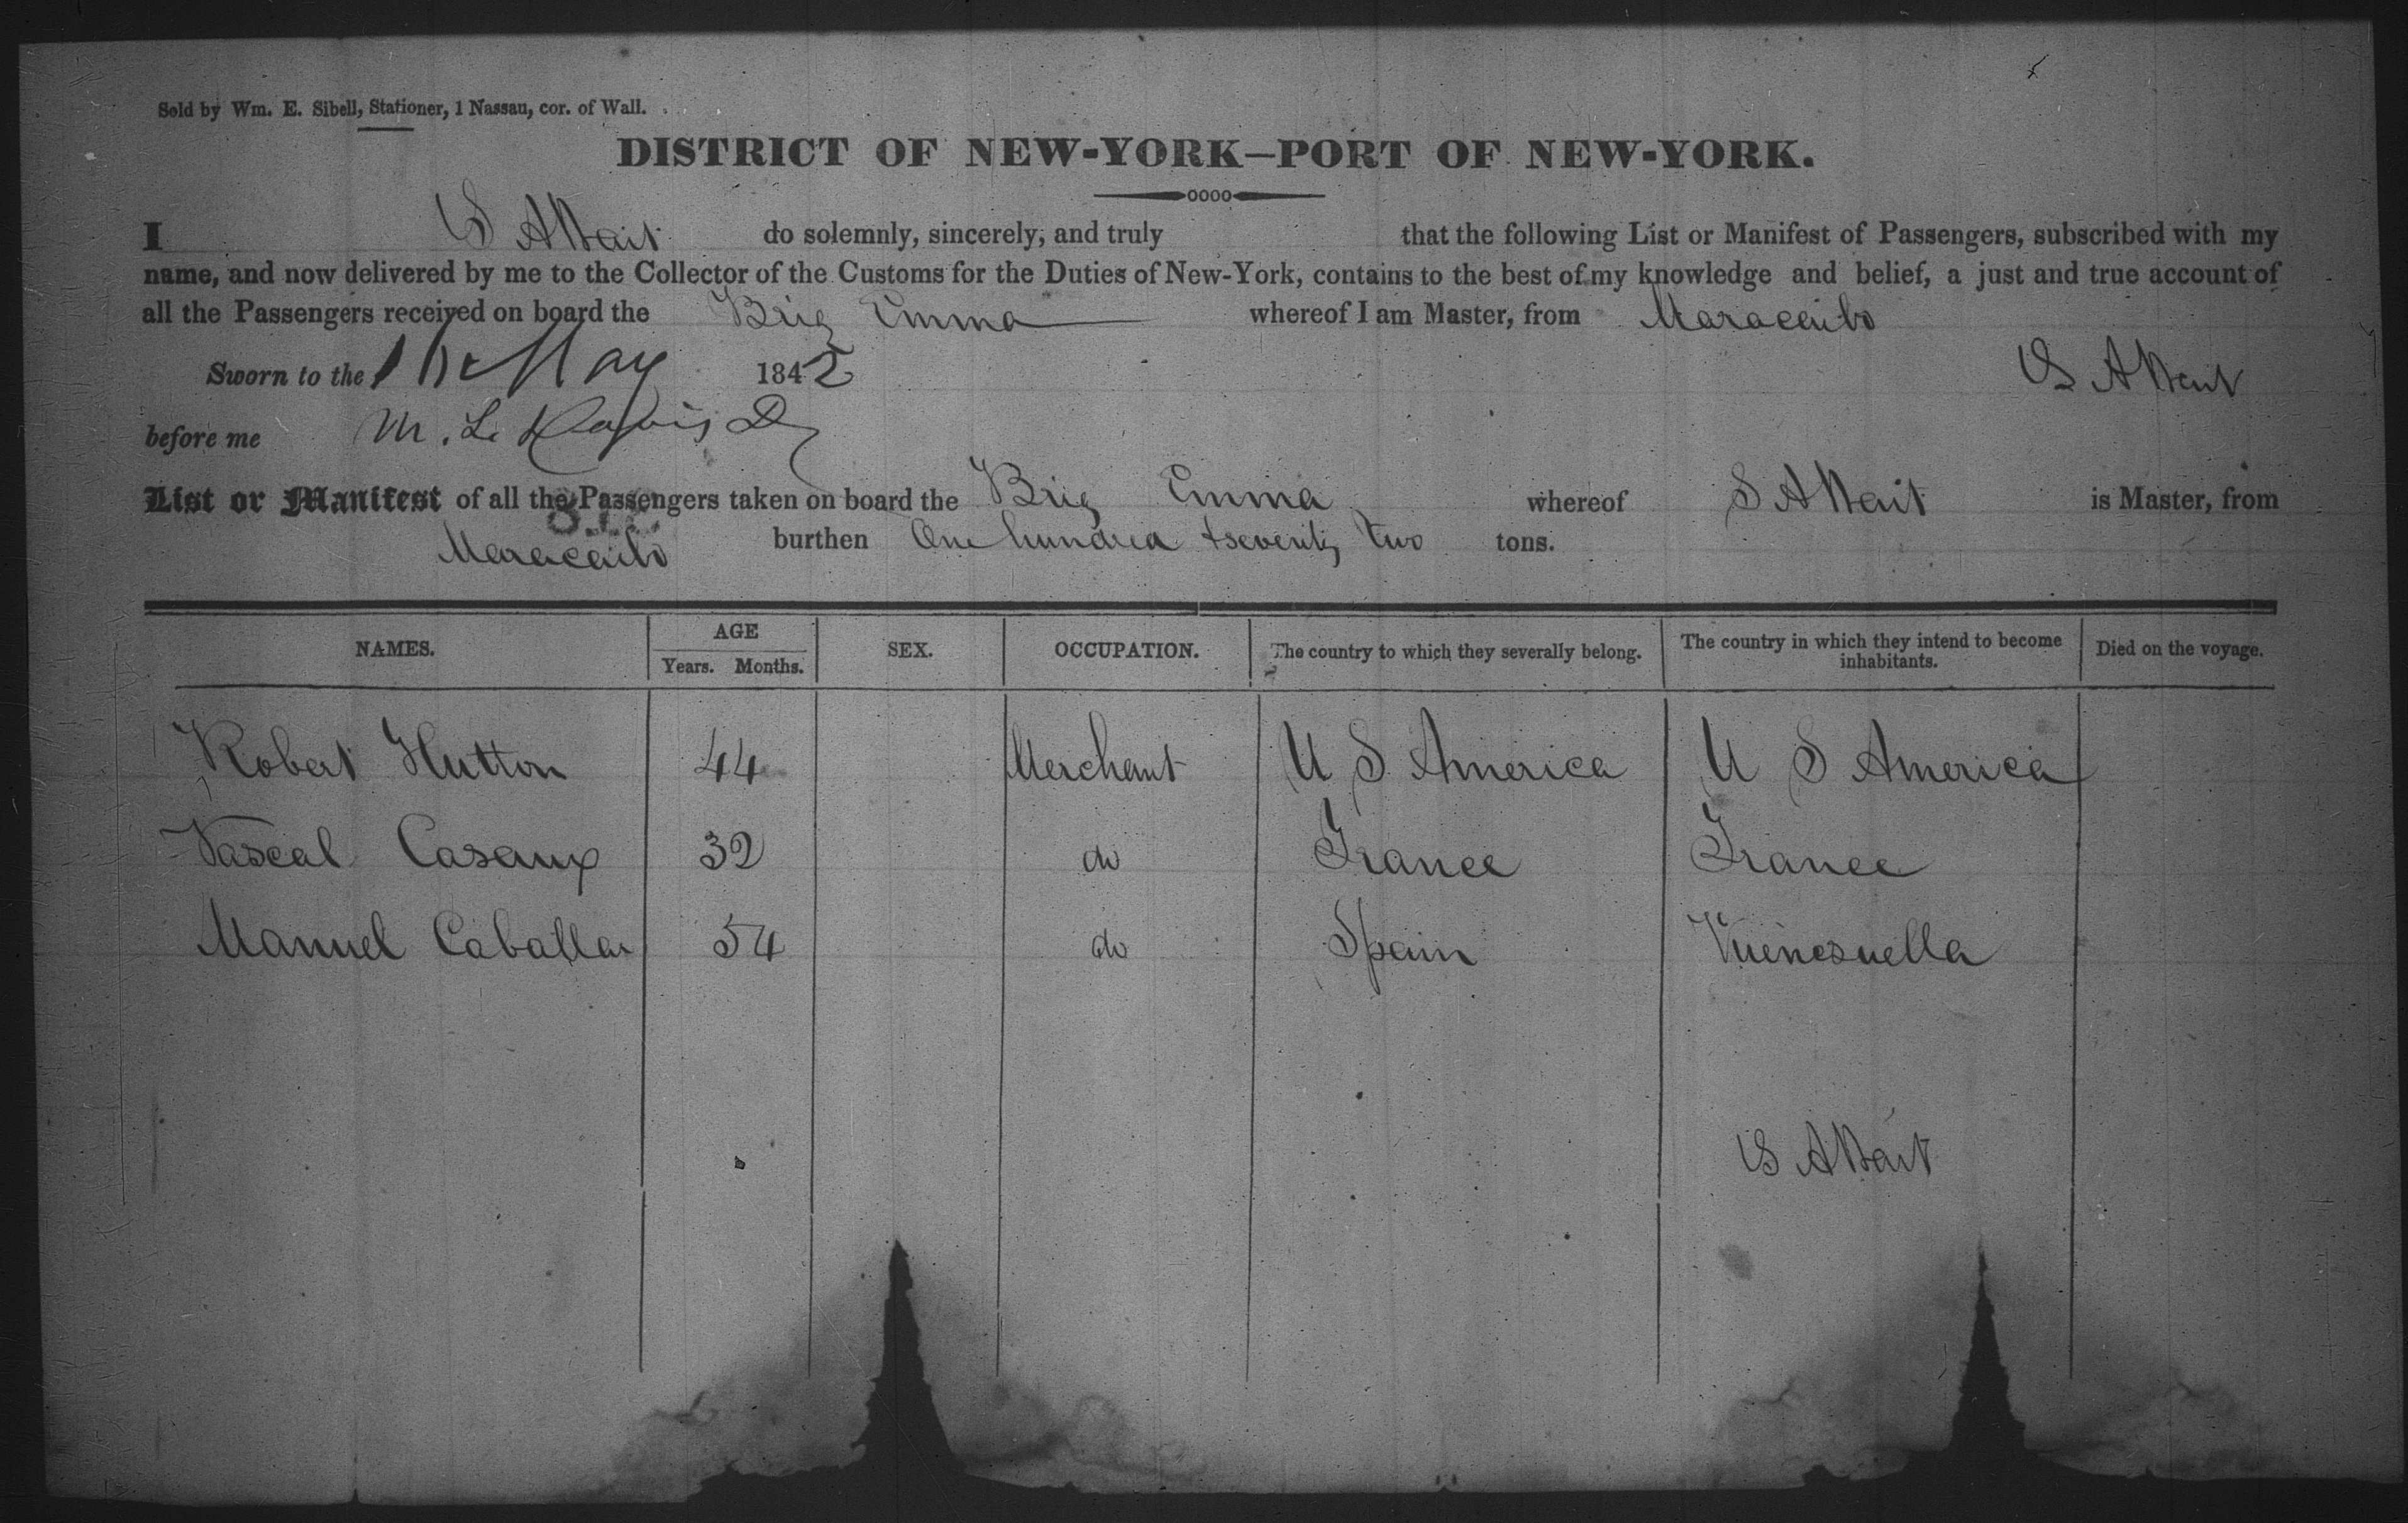 Sold by Wm. E. Sibell, Stationer, 1 Nassau, cor. of Wall.
DISTRICT OF NEW-YORK—PORT OF NEW-YORK.
I S A Wait do solemnly, sincerely, and truly that the following List or Manifest of Passengers, subscribed with my
name, and now delivered by me to the Collector of the Customs for the Duties of New-York, contains to the best of my knowledge and belief, a just and true account of
all the Passengers received on board the Brig Emma whereof I am Master, from Maracaibo
Sworn to the May 1842 S A Wait
before me M. L. Davis
List or Manifest of all the Passengers taken on board the Brig Emma whereof S A Wait is Master, from
Maracaibo burthen One hundred & seventy two tons.
NAMES. AGE Years. Months. SEX. OCCUPATION. The country to which they severally belong. The country in which they intend to become inhabitants. Died on the voyage.
Robert Hutton 44 Merchant U S America U S America
Pascal Casaux 32 do France France
Manuel Caballar 54 do Spain Vuenesuella
S A Wait